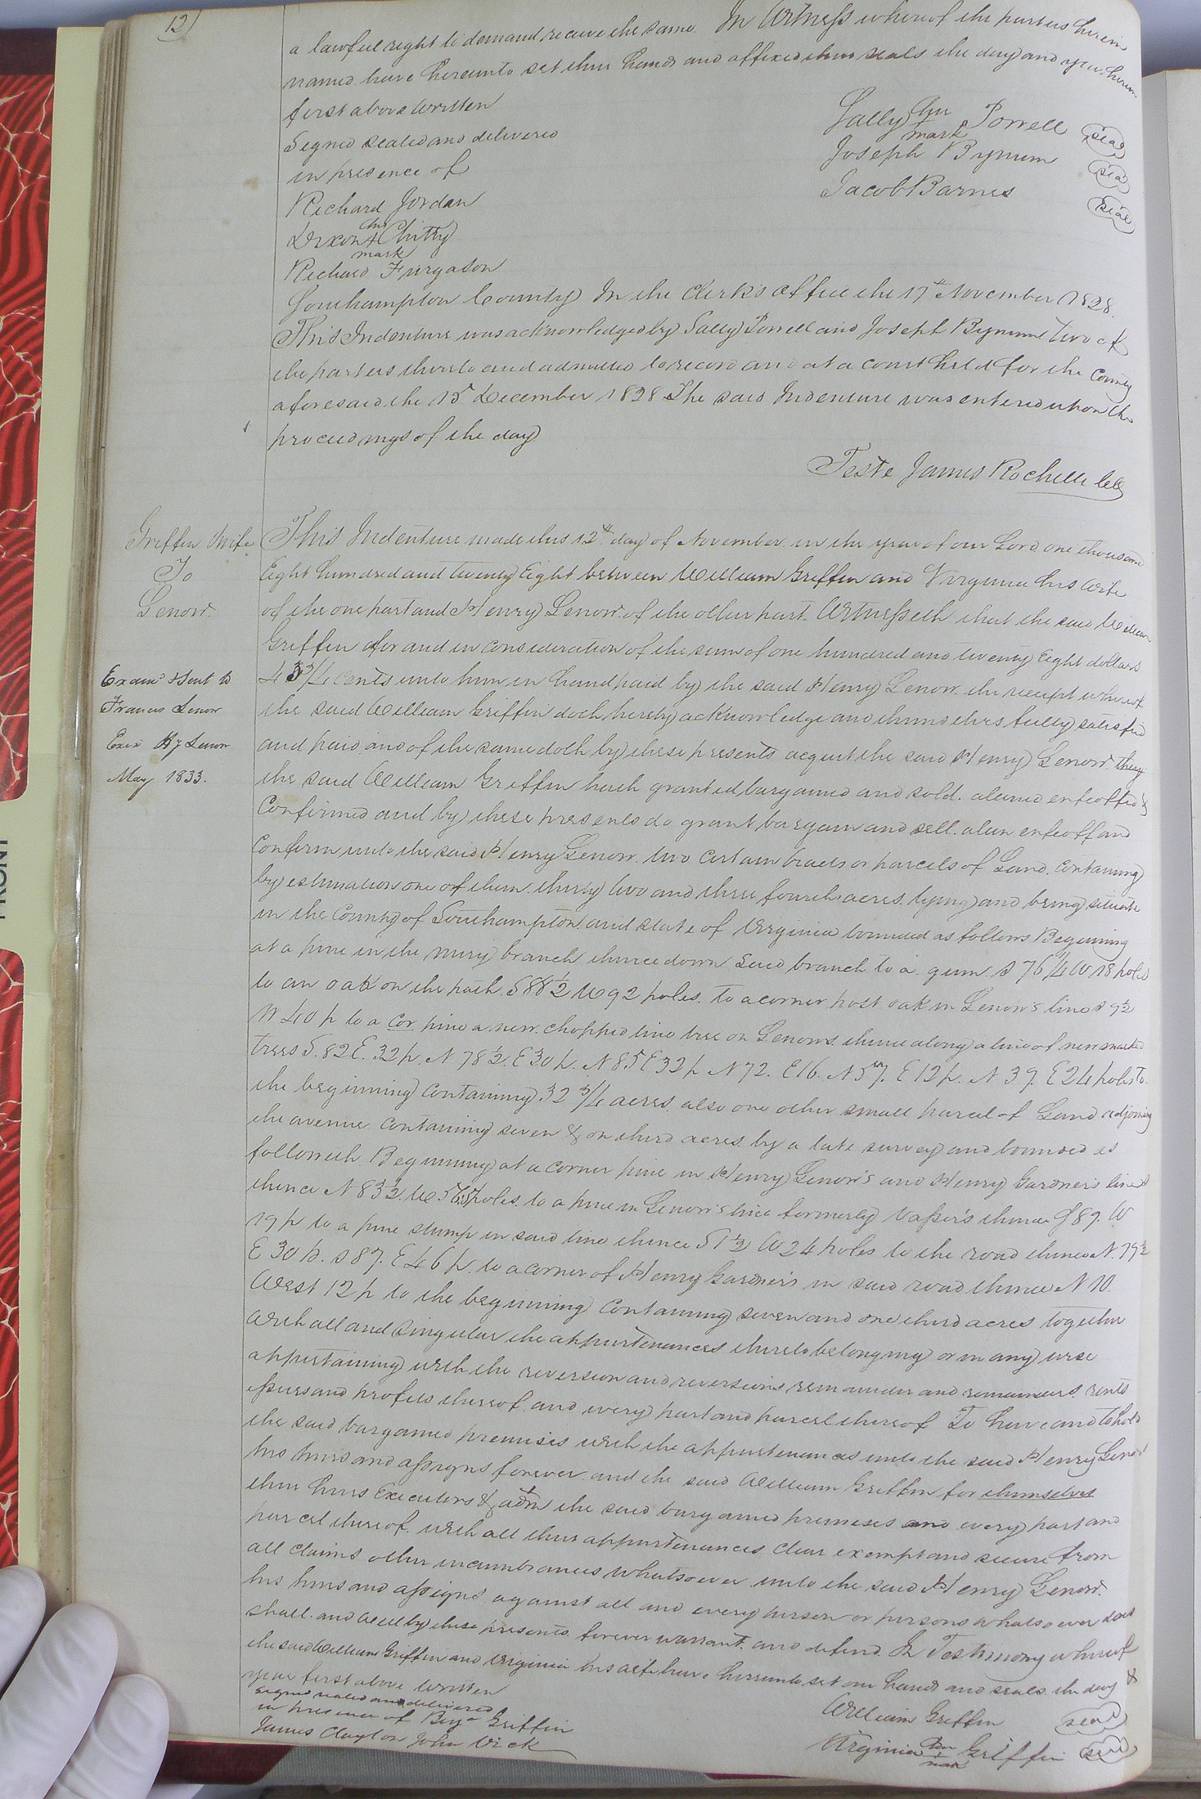 12
a lawful right to demand receive the same. In Witness whereof the parties herein
named have hereunto set their hands and affixed their seals the day and year herein
first above written
Signed sealed and delivered
in presence of
Richard Jordan
Dixon his + Chitty
mark
Richard Furgason
Sally her Porrell seal
mark
Joseph Bynum seal
Jacob Barnes seal
Southampton County In the Clerk's office the 17th November 1828.
This Indenture was acknowledged by Sally Porrell and Joseph Bynum two of
the parties thereto and admitted to record and at a court held for the County
aforesaid the 15 December 1828 The said Indenture was entered upon the
proceedings of the day
Teste James Rochelle
Griffin Wife
To
Lenow
Exam & sent to
Francis Lenow
Exor Hy Lenow
May 1833.
This Indenture made this 12th day of November in the year of our Lord one thousand
Eight hundred and twenty Eight between William Griffin and Virginia his wife
of the one part and Henry Lenow of the other part. Witnesseth that the said William
Griffin for and in consideration of the sum of one hundred and twenty Eight dollars
cents unto him in hand paid by the said Henry Lenow the receipt whereof
the said William Griffin doth hereby acknowledge and themselves fully satisfied
and paid and of the same doth by these presents acquit the said Henry Lenow they
the said William Griffin hath granted bargained and sold. aliened enfeoffed &
Confirmed and by these presents do grant bargain and sell. alien enfeoff and
Confirm unto the said Henry Lenow two certain tracts or parcels of Land. containing
by estimation one of them thirty two and three fourth acres lying and being situate
in the County of Southampton and state of Virginia bounded as follows Beginning
at a pine in the miry branch thence down said branch to a gum S 76 1/4 W 18 poles
to an oak on the path. S 88 1/2 W 92 poles. to a corner post oak in Lenow's line S 9 1/2
W 40 p to a Cor. pine a new chopped line tree on Lenows thence along a line of new marked
trees S. 82 E. 32 p. N 78 1/2. E 30 p. N 85 E 32 p N 72. E 16. N 57. E 12 p. N 39. E 24 poles to
the beginning containing 32 3/4 acres. also one other small parcel of Land adjoining
the avenue containing seven & one third acres by a late survey and bounded as
followeth Beginning at a corner pine in Henry Lenow's and Henry Gardner's line
thence N 83 1/2 W poles to a pine in Lenow's line formerly Vasser's thence S 89. W
19 p to a pine stump in said line thence S 1 1/2 W 24 poles to the road thence N. 79 1/2
E 30 p. S 87. E 46 p. to a corner of Henry Gardner's in said road thence N 10.
West 12 p to the beginning containing seven and one third acres together
with all and singular the appurtenances thereto belonging or in any wise
appertaining with the reversion and reversions remainder and remainders rents
issues and profits thereof and every part and parcel thereof To have and to hold
the said bargained premises with the appurtenances unto the said Henry Lenow
his heirs and assigns forever and the said William Griffin for themselves
their heirs Executors & adm the said bargained premises and every part and
parcel thereof. with all their appurtenances clear exempt and secure from
all claims other incumbrances whatsoever unto the said Henry Lenow
his heirs and assigns against all and every person or persons whatsoever does
shall. and will by these presents forever warrant and defend. In Testimony whereof
the said William Griffin and Virginia his wife have hereunto set our hands and seals the day &
year first above written
signed sealed and delivered
in presence of Benj Griffin
James Clayton John Vick
William Griffin seal
Virginia her + Griffin seal
mark